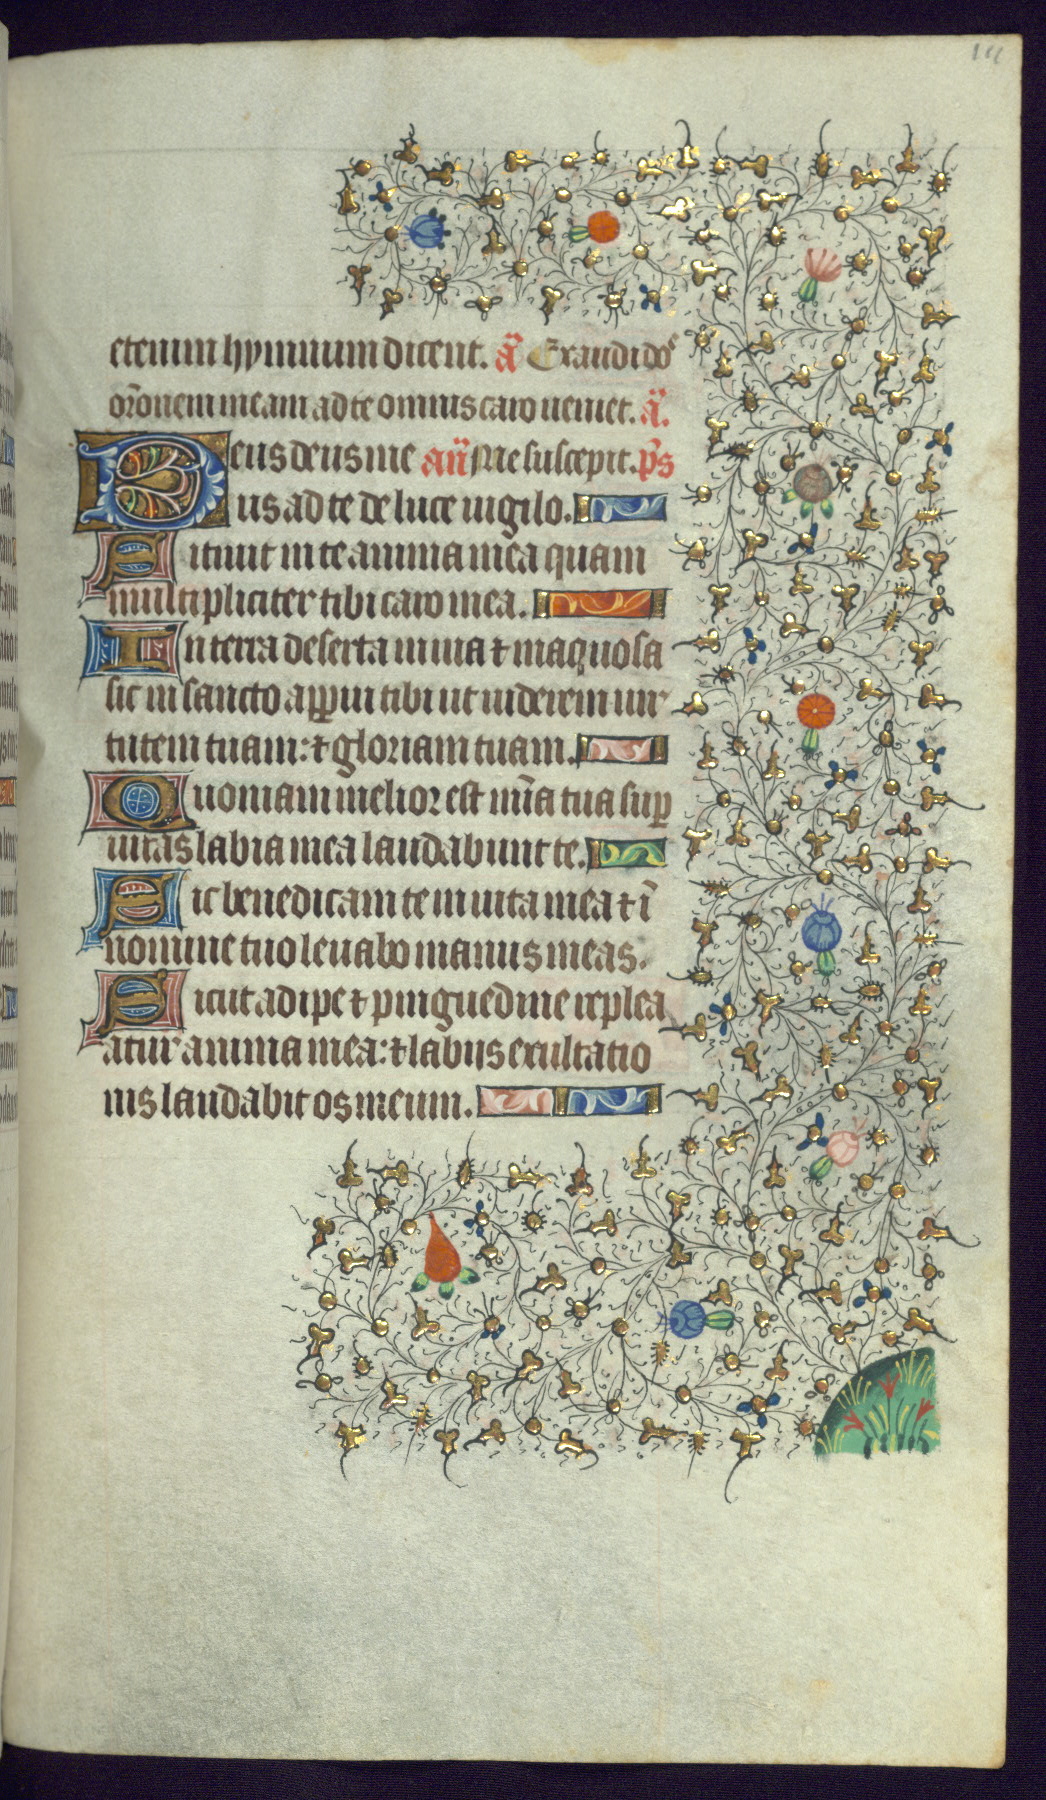 etenim hymnum dicent. ã Exaudi dõs
or̃onem meam ad te omnis caro ueniet. ã.
Deus deus me añ Me suscepit. p̃s
us ad te de luce uigilo.
Sitiuit in te anima mea quam
multipliciter tibi caro mea.
In terra deserta inuia ⁊ inaquosa
sic in sancto apparui tibi ut uiderem uir
tutem tuam: ⁊ gloriam tuam.
Quoniam melior est mĩa tua sup
uitas labia mea laudabunt te.
Sic benedicam te in uita mea ⁊ ĩ
nomine tuo leuabo manus meas.
Sicut adipe ⁊ pinguedine replea
atur anima mea: ⁊ labijs exultatio
nis laudabit os meum.